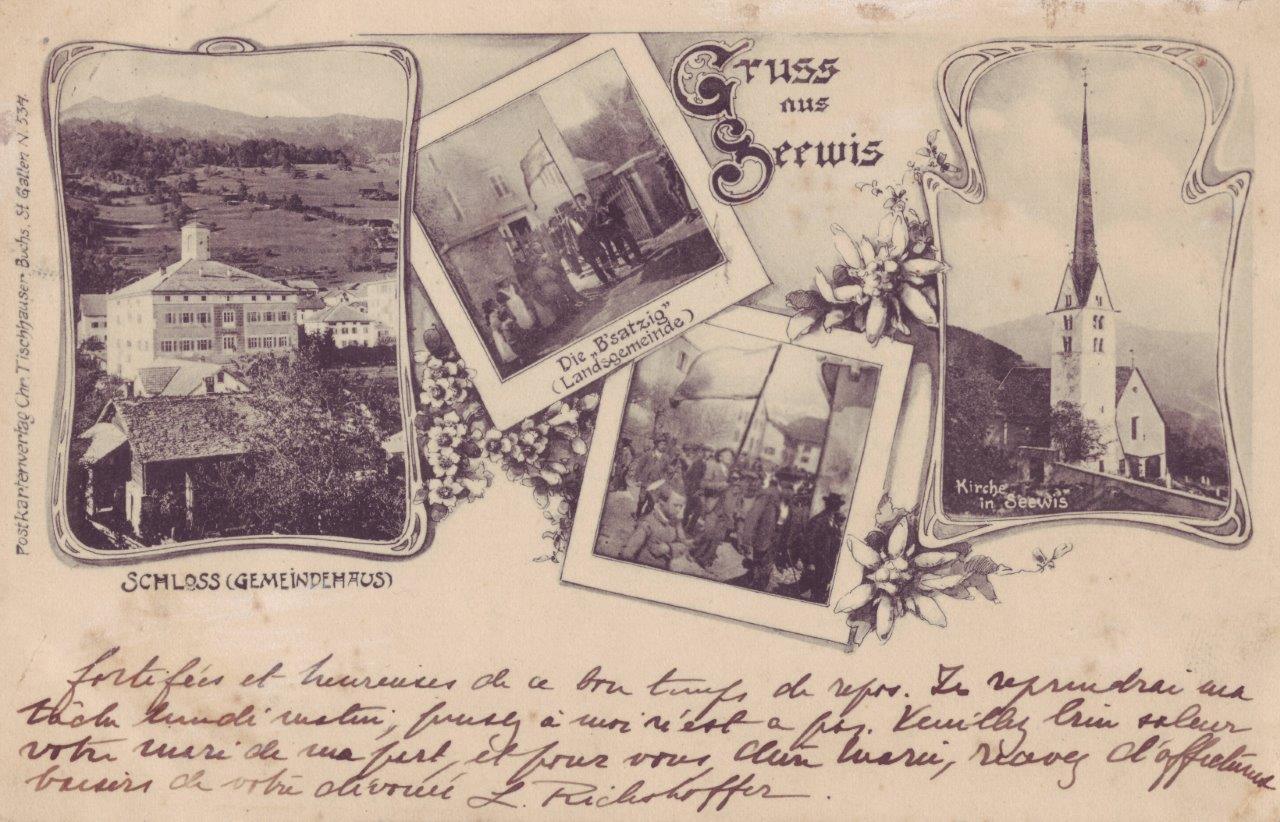 Gruss
aus
Seewis
Postkartenverlag Chr. Tischhauser Buchs, St. Gallen N. 534.
Die „B'satzig"
(Landsgemeinde)
Kirche
in Seewis
SCHLOSS (GEMEINDEHAUS)
fortifiées et heureuses de ce bon temps de repos. Je reprendrai ma
tâche lundi matin, pensez à moi n'est ce pas. Veuillez bien saluer
votre mari de ma part, et pour vous, chère Marie, recevez d'affectueux
baisers de votre dévouée L. Richshoffer.